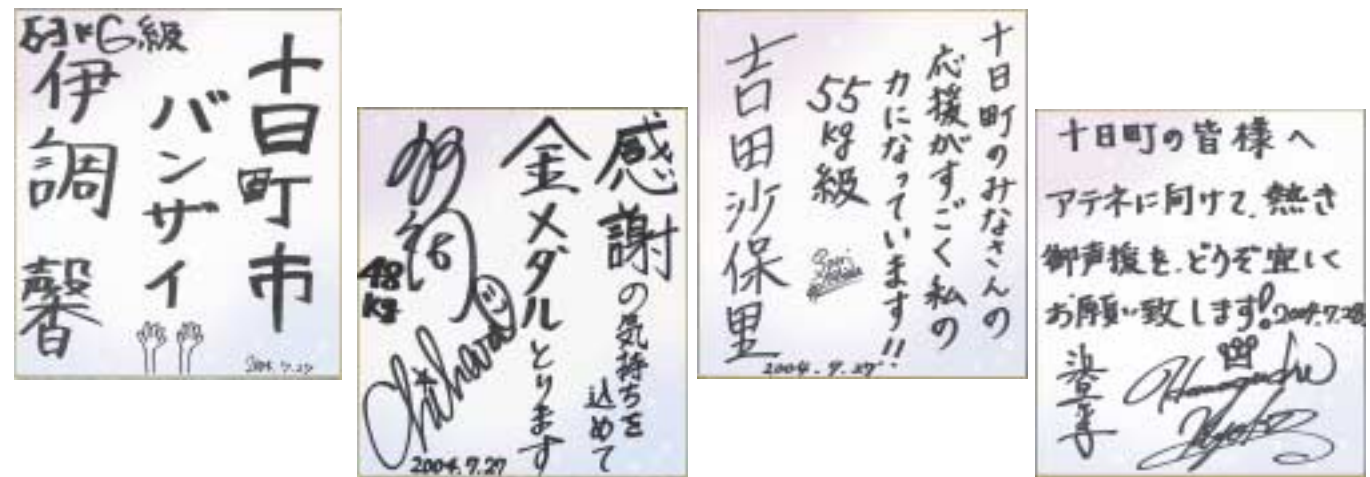 十日町市
バンザイ
63KG級
伊調 馨
2004.7.27
感謝の気持ちを
込めて
金メダルとります
48
kg
Chiharu
2004.7.27
十日町のみなさんの
応援がすごく私の
力になっています!!
55kg級
吉田沙保里
Saori
2004.7.27
十日町の皆様へ
アテネに向けて、熱き
御声援を、どうぞ宜しく
お願い致します!2004.7.28
Hamaguchi
Kyoko